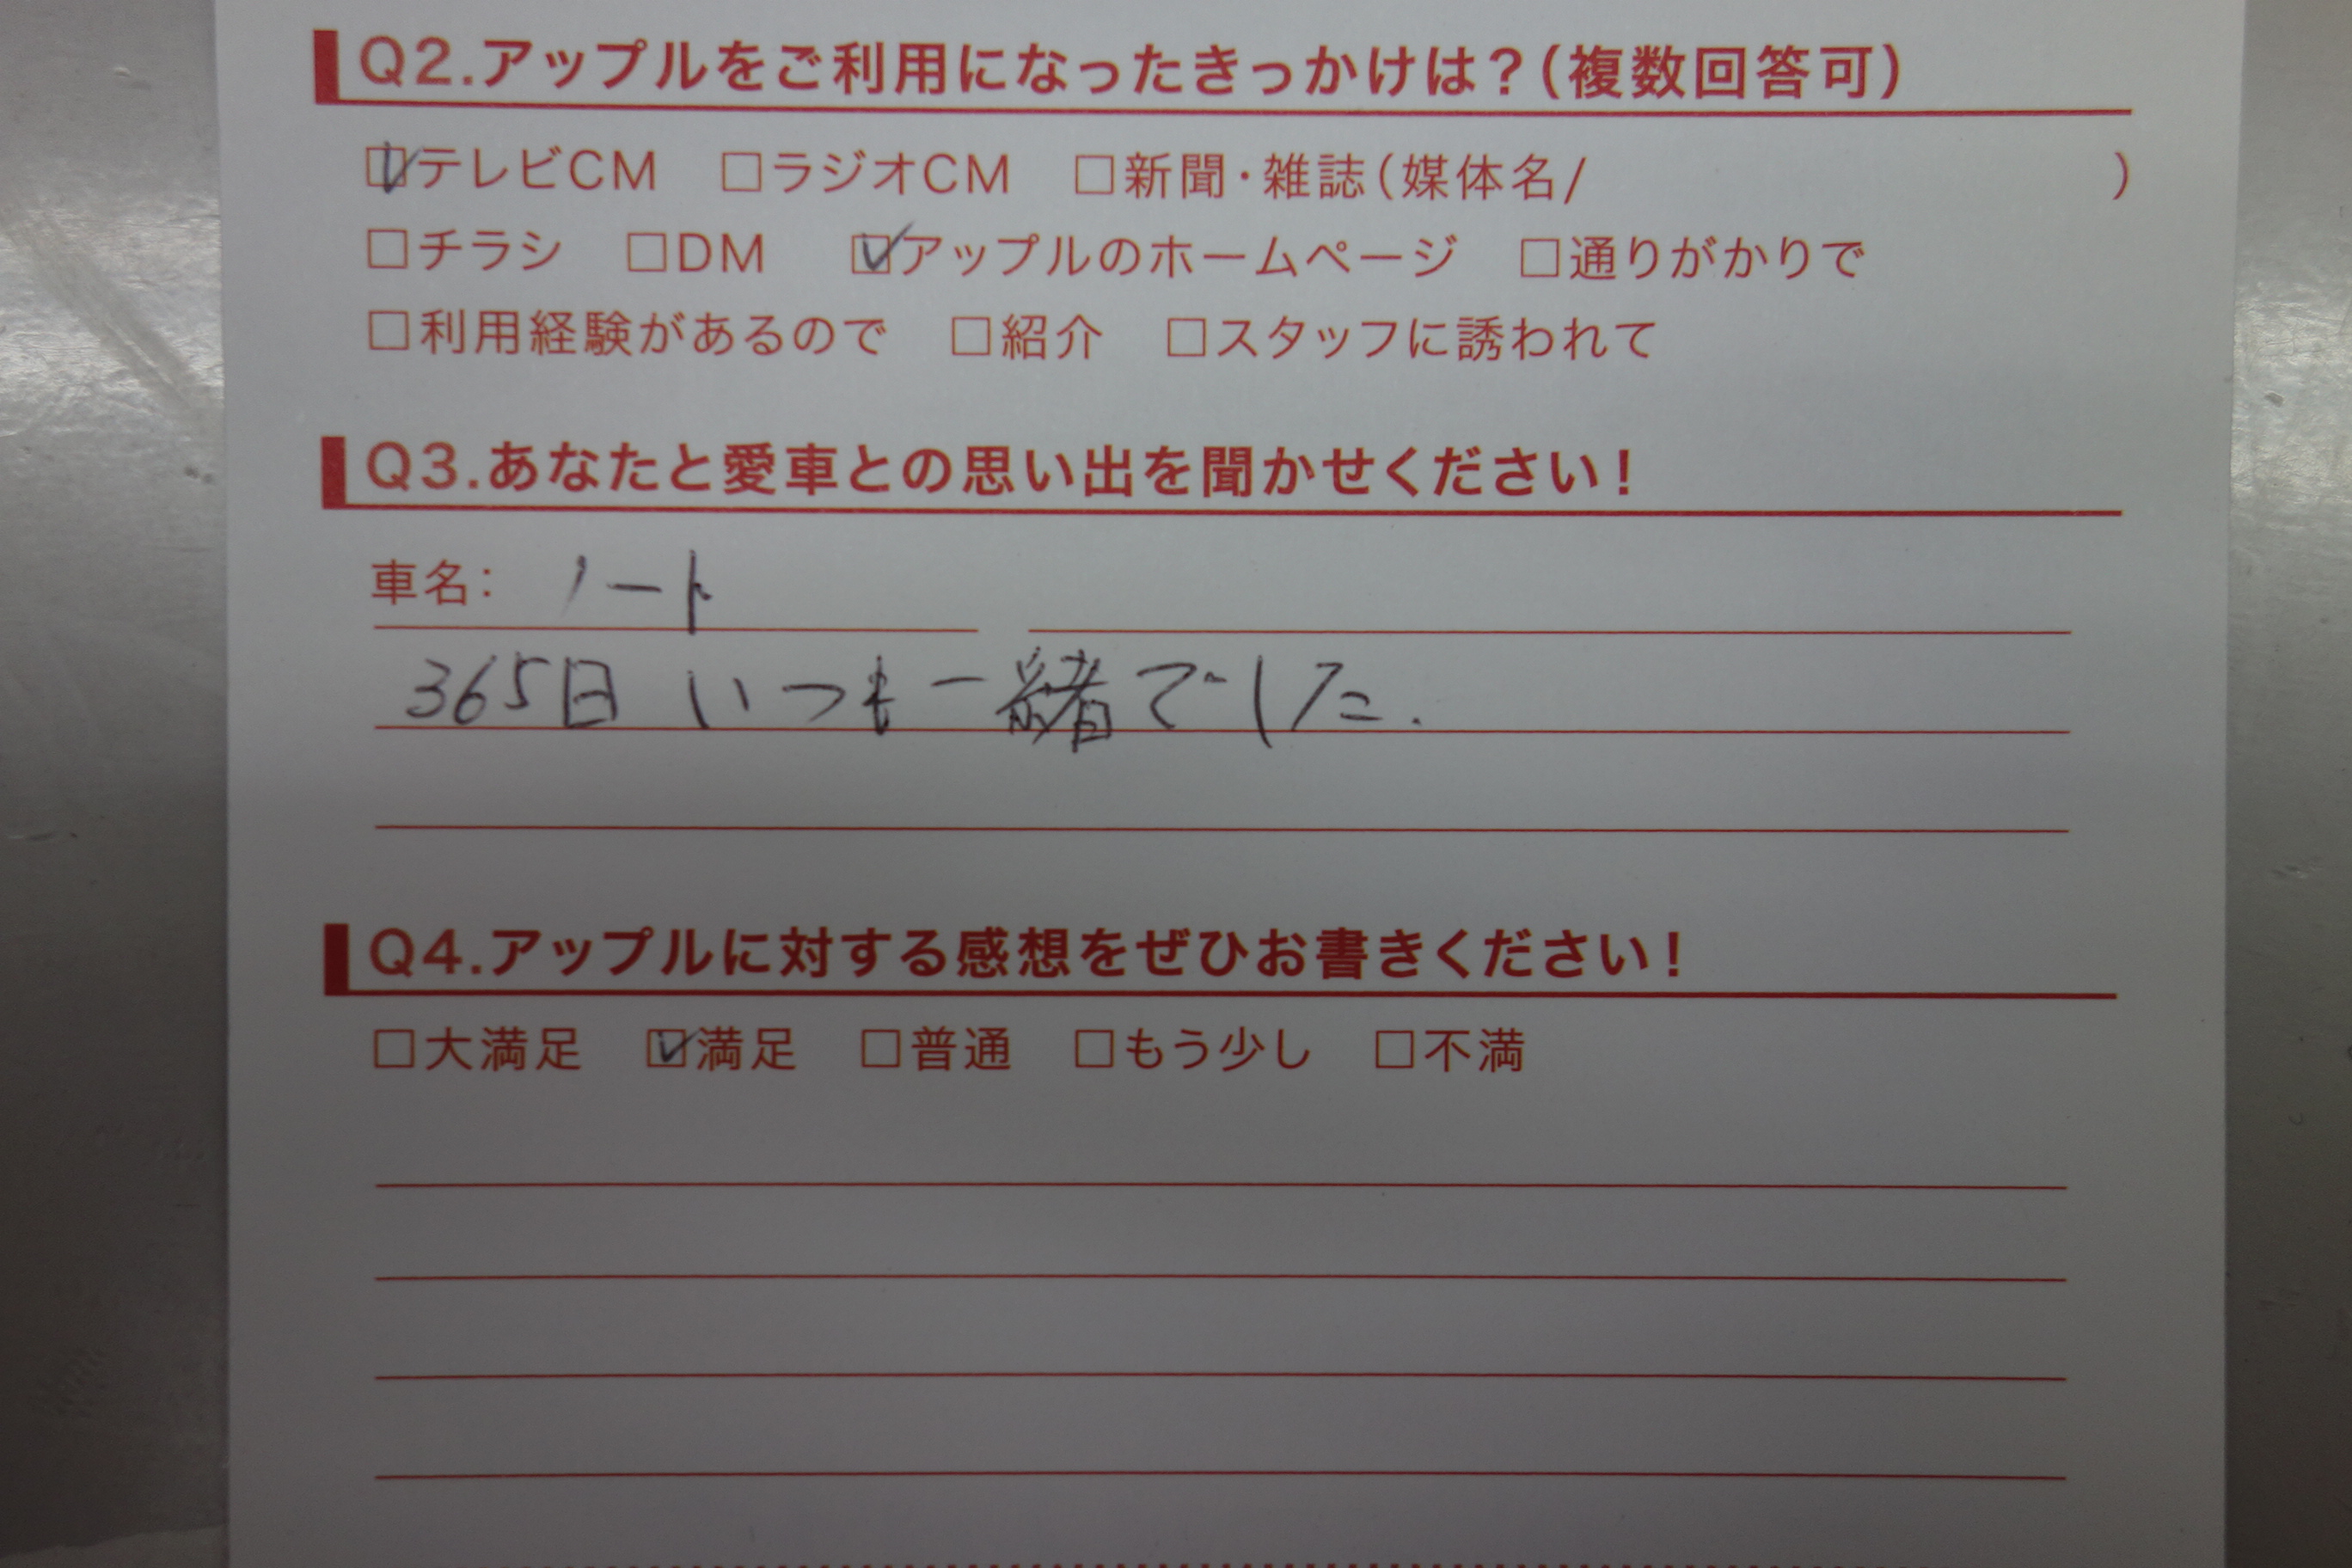 Q2.アップルをご利用になったきっかけは?(複数回答可)
☑テレビCM □ラジオCM □新聞・雑誌(媒体名/ )
□チラシ □DM ☑アップルのホームページ □通りがかりで
□利用経験があるので □紹介 □スタッフに誘われて
Q3.あなたと愛車との思い出を聞かせください!
車名: ノート
365日 いつも一緒でした.
Q4.アップルに対する感想をぜひお書きください!
□大満足 ☑満足 □普通 □もう少し □不満